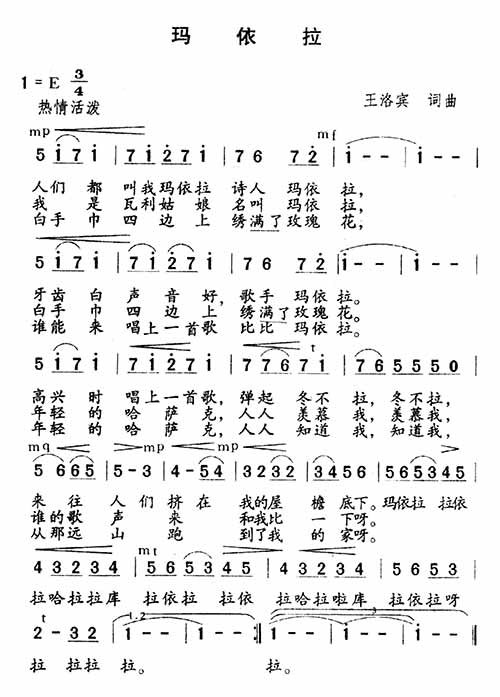 玛 依 拉
1 = E 3/4
热情活泼
王洛宾 词曲
mp mf
5 i 7 i | 7 i 2 7 i | 7 6 7 2 | i - - | i - - |
人们 都 叫我玛依拉 诗人 玛依 拉,
我 是 瓦利姑 娘 名叫 玛依 拉,
白手 巾 四边上 绣满了玫瑰 花,
5 i 7 i | 7 i 2 7 i | 7 6 7 2 | i - - | i - - |
牙齿 白 声 音 好, 歌手 玛依 拉。
白手 巾 四边上 绣满了玫瑰 花。
谁能 来 唱上一首歌 比比 玛依 拉。
高兴 时 唱上一首歌, 弹起 冬不 拉, 冬不拉,
年轻 的 哈 萨 克, 人人 羡慕 我, 羡慕我,
年轻 的 哈 萨 克, 人人 知道 我, 知道我,
mp mp
5 6 6 5 | 5 - 3 | 4 - 5 4 | 3 2 3 2 | 3 4 5 6 | 5 6 5 3 | 2 3 4 5 |
来 往 人们 挤在 我的屋 檐 底下。玛依拉 拉依
谁的歌 声 来 和我比 一 下呀。
从那远 山 跑 到了我 的 家呀。
4 3 2 3 2 | 5 6 5 3 4 5 | 4 3 2 3 2 | 5 6 5 3 |
拉哈拉拉库 拉依拉 拉依 拉哈拉啦库 拉依拉呀
2 - 3 2 | i - - | i - - :| i - - | i - - |
拉 拉拉 拉。 拉。